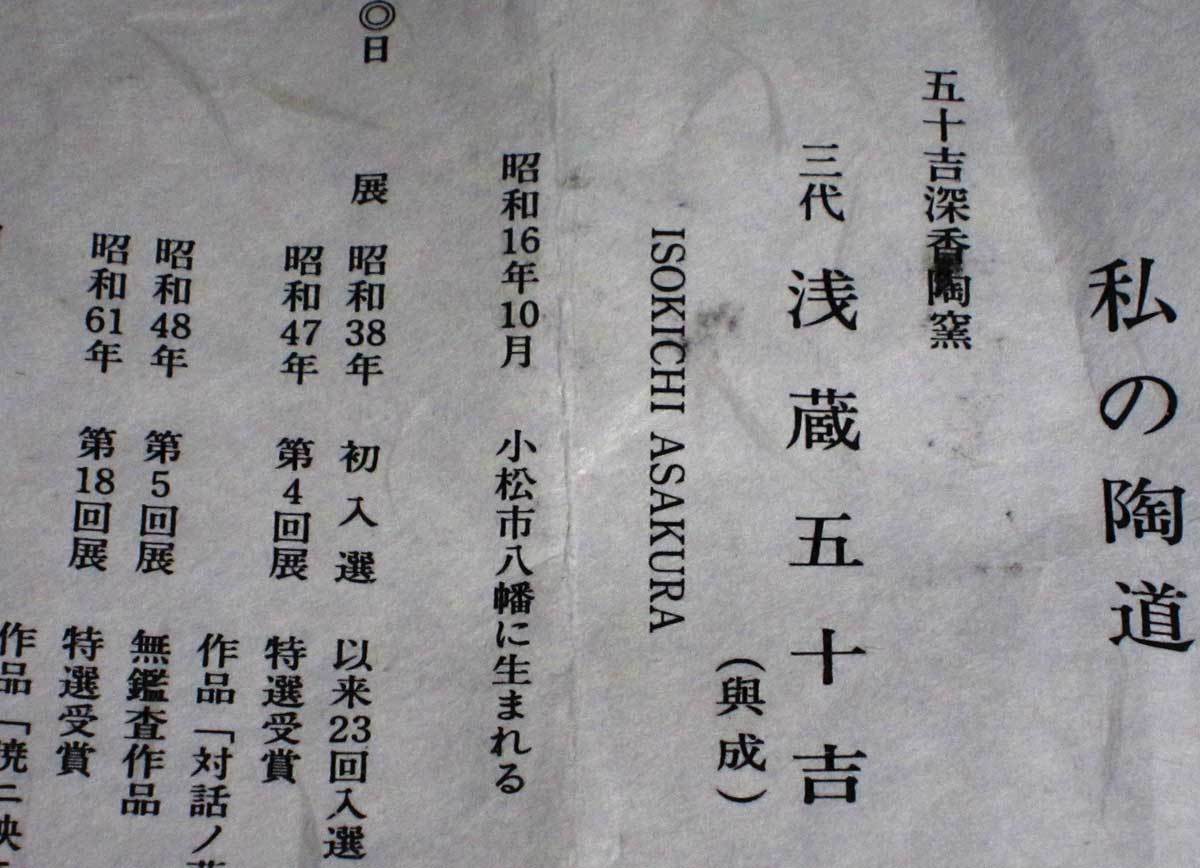 私の陶道
五十吉深香陶窯
三代 浅蔵五十吉
(與成)
ISOKICHI ASAKURA
昭和16年10月 小松市八幡に生まれる
◎日 展 昭和38年 初入選 以来23回入選
昭和47年 第4回展 特選受賞
作品「対話ノ
昭和48年 第5回展 無鑑査作品
昭和61年 第18回展 特選受賞
作品「暁ニ映